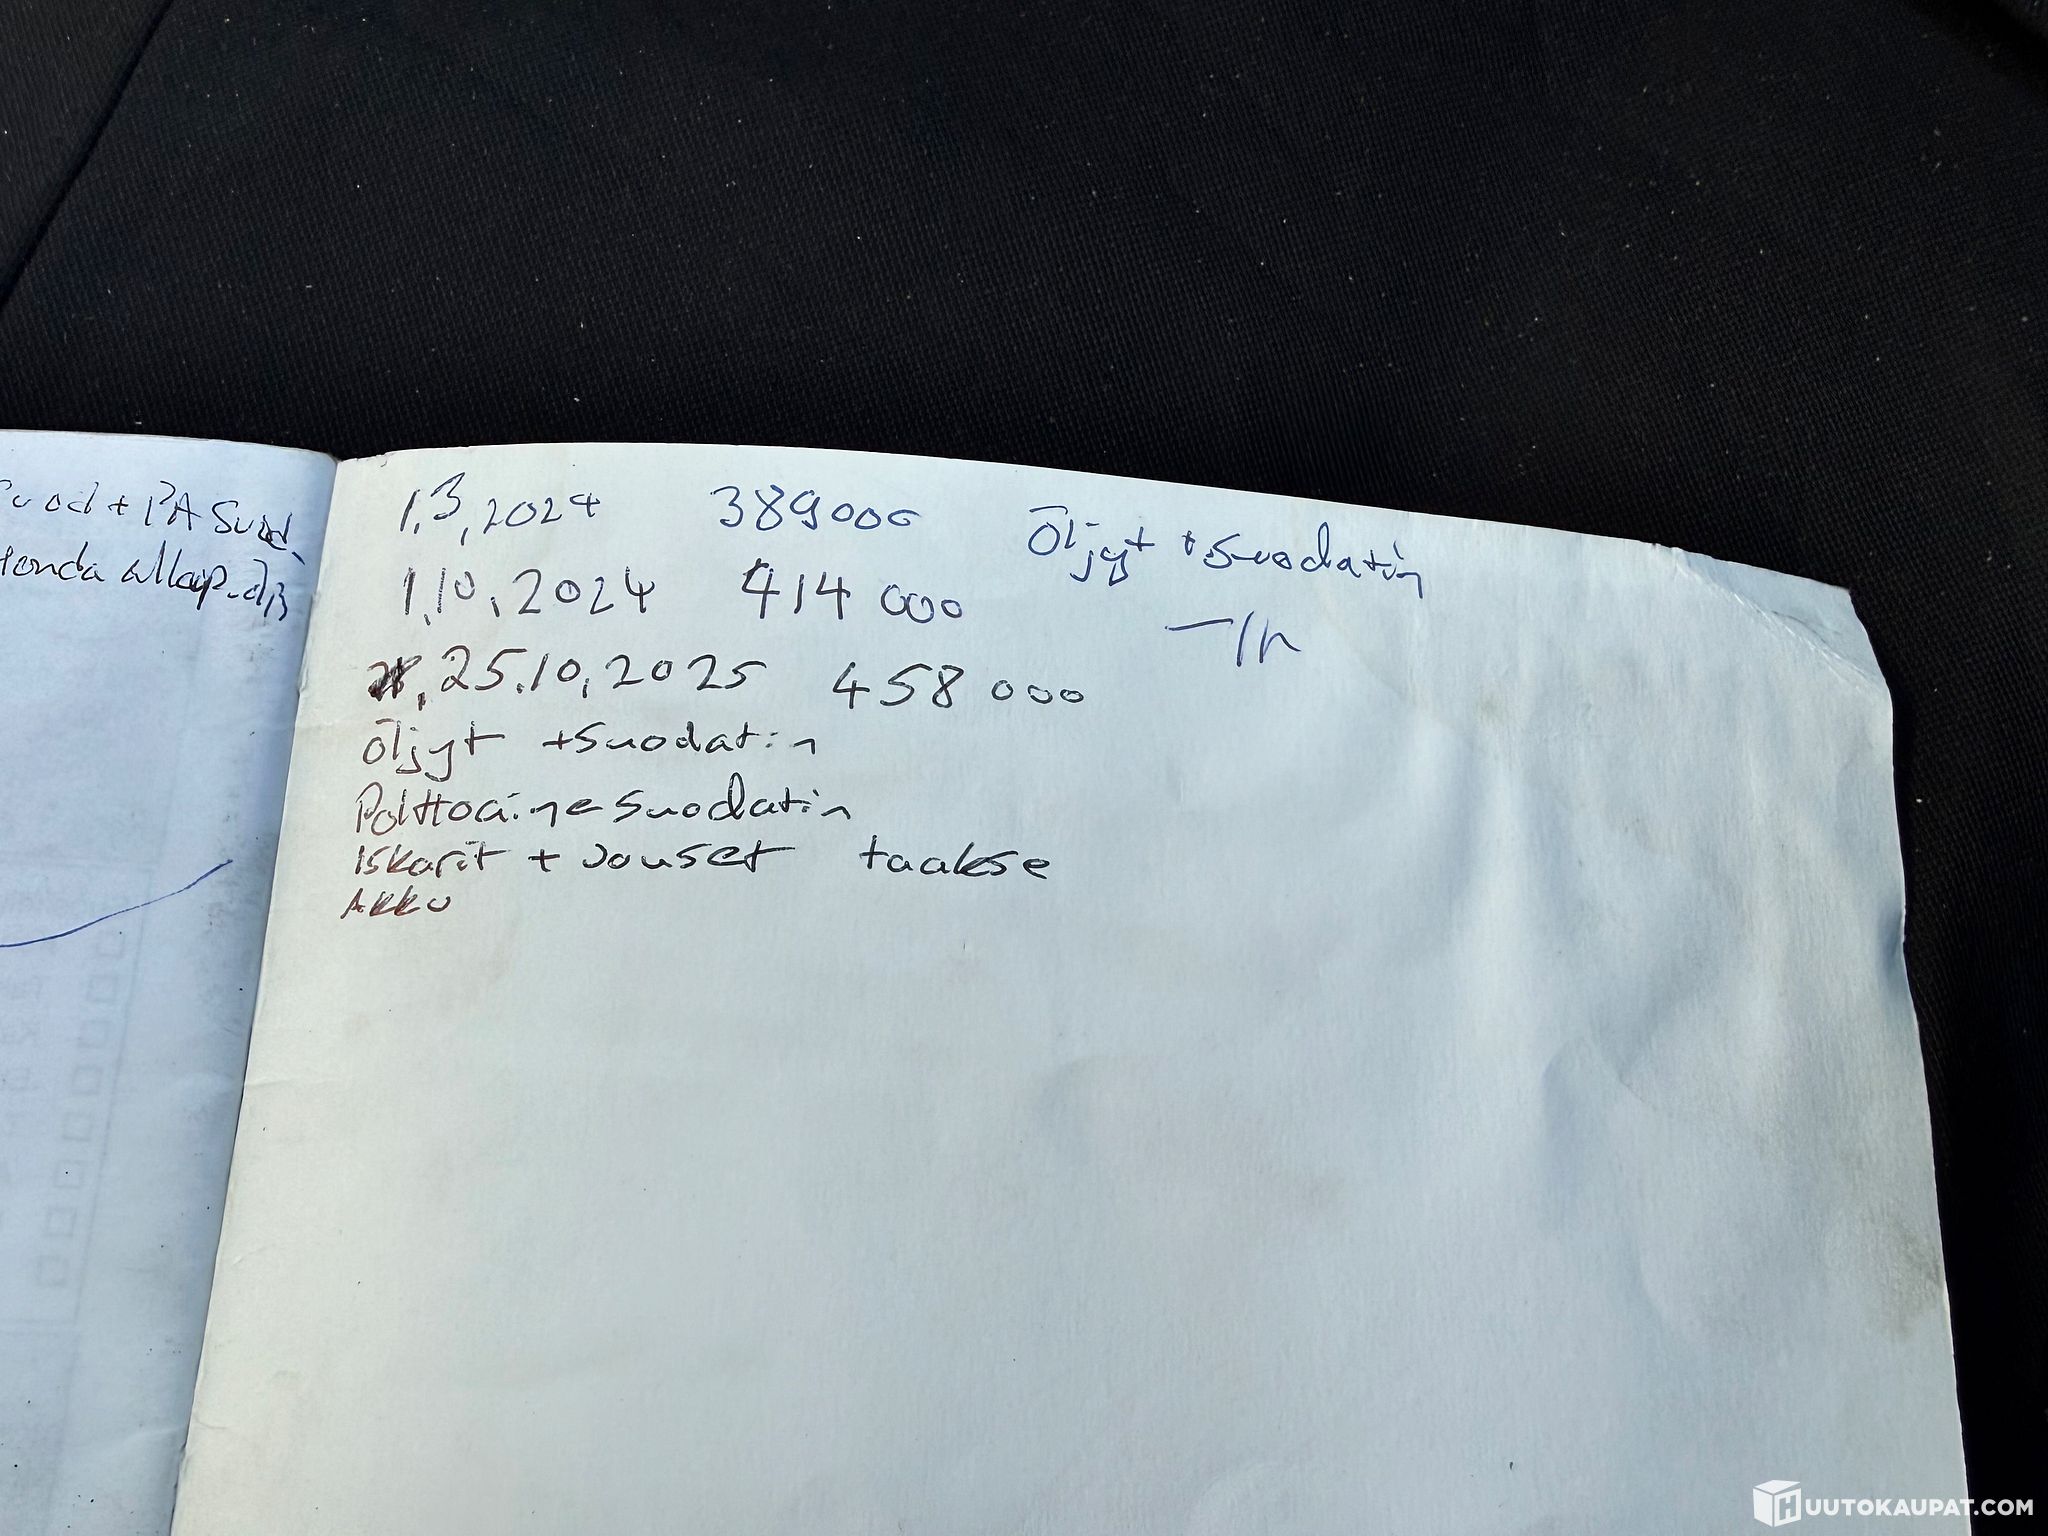 + PA Suod.
1.3.2024 389000 Öljyt + Suodatin
1.10.2024 414 000 —/n
25.10.2025 458 000
Öljyt + Suodatin
Polttoainesuodatin
Iskarit + Jouset taakse
AKKU
HUUTOKAUPAT.COM